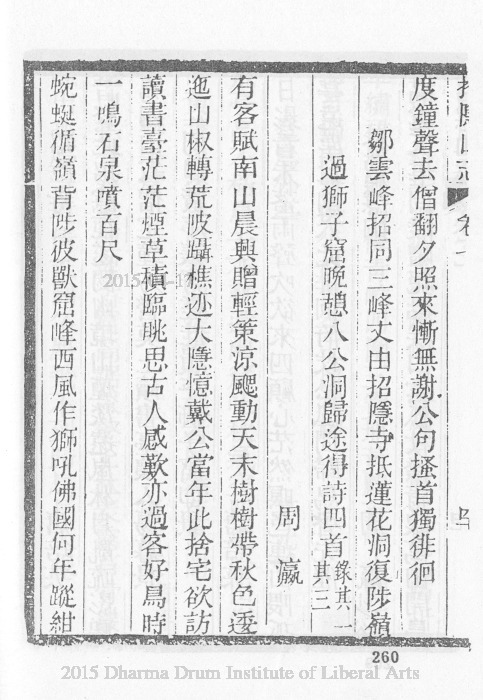 招隱山志 卷七
度鐘聲去僧翻夕照來慚無謝公句搔首獨徘徊
鄒雲峰招同三峰丈由招隱寺抵蓮花洞復陟嶺
過獅子窟晚憩八公洞歸途得詩四首錄其一其三
周瀛
有客賦南山晨興贈輕策涼颸動天末樹樹帶秋色逶
迤山椒轉荒陂躡樵迹大隱憶戴公當年此捨宅欲訪
讀書臺茫茫煙草積臨眺思古人感歎亦過客好鳥時
一鳴石泉噴百尺
蜿蜒循嶺背陟彼獸窟峰西風作獅吼佛國何年蹤紺
260
2015 Dharma Drum Institute of Liberal Arts